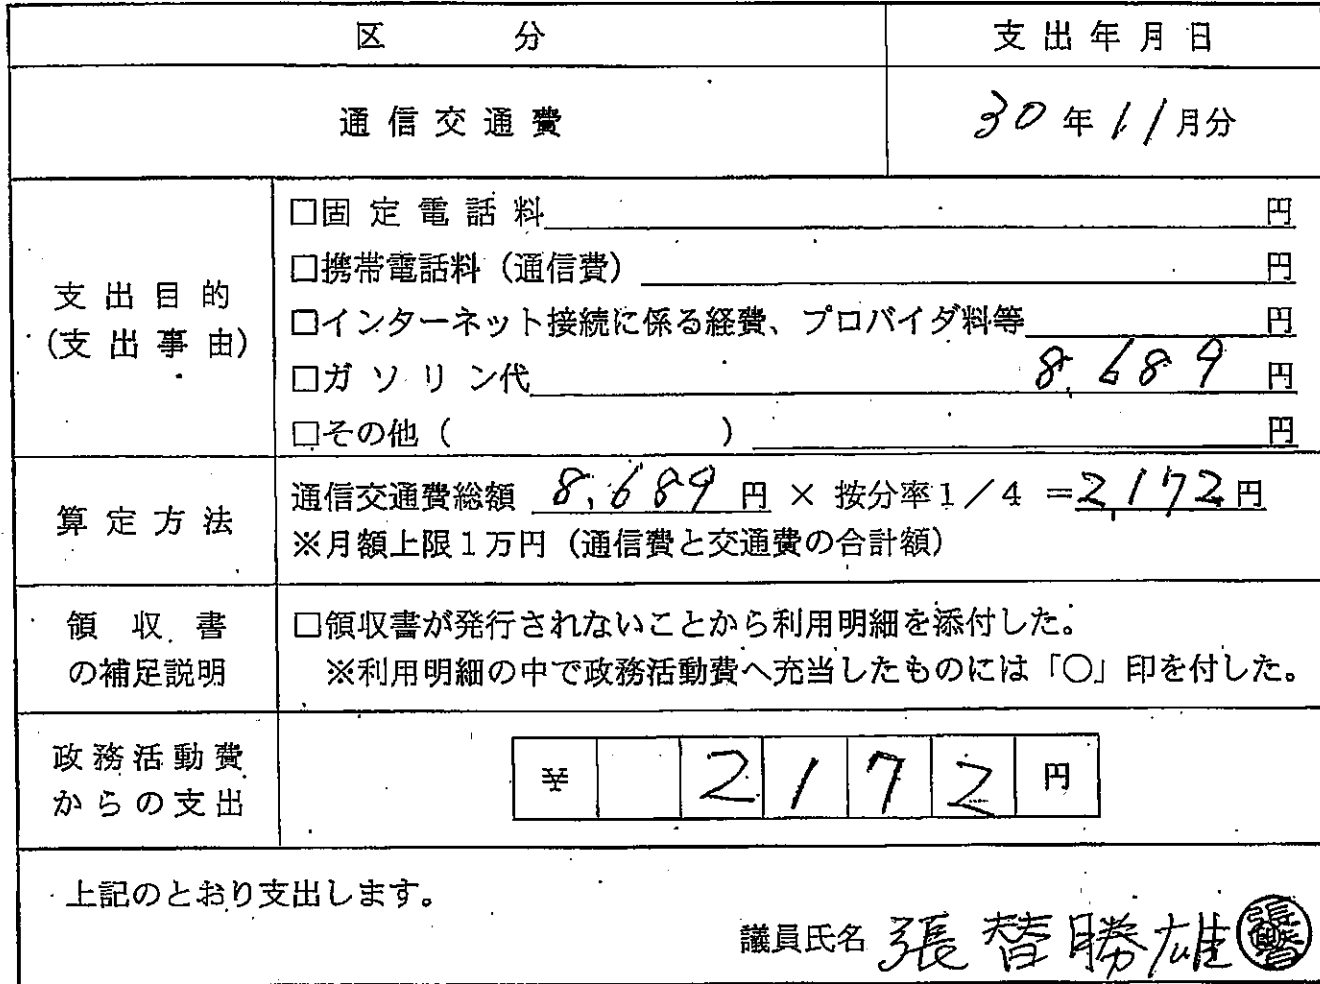 区 分 支出年月日
通信交通費 30年11月分
支出目的
(支出事由)
□固定電話料 円
□携帯電話料（通信費） 円
□インターネット接続に係る経費、プロバイダ料等 円
□ガソリン代 8,689 円
□その他（ ） 円
算定方法
通信交通費総額 8,689 円 × 按分率1／4 ＝2,172円
※月額上限1万円（通信費と交通費の合計額）
領収書
の補足説明
□領収書が発行されないことから利用明細を添付した。
※利用明細の中で政務活動費へ充当したものには「○」印を付した。
政務活動費
からの支出
¥ 2172円
上記のとおり支出します。
議員氏名 張替勝雄 張替